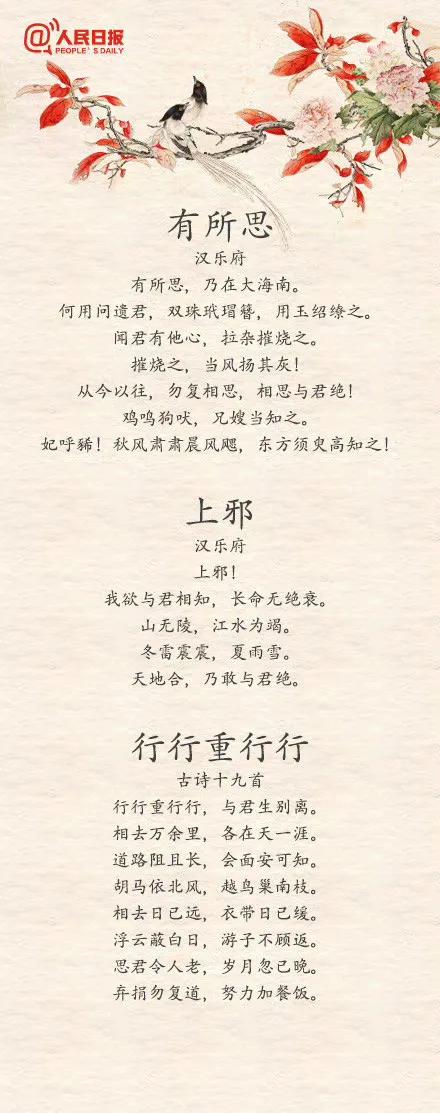 @人民日报
PEOPLE'S DAILY
有所思
汉乐府
有所思，乃在大海南。
何用问遗君，双珠玳瑁簪，用玉绍缭之。
闻君有他心，拉杂摧烧之。
摧烧之，当风扬其灰！
从今以往，勿复相思，相思与君绝！
鸡鸣狗吠，兄嫂当知之。
妃呼豨！秋风肃肃晨风飔，东方须臾高知之！
上邪
汉乐府
上邪！
我欲与君相知，长命无绝衰。
山无陵，江水为竭。
冬雷震震，夏雨雪。
天地合，乃敢与君绝。
行行重行行
古诗十九首
行行重行行，与君生别离。
相去万余里，各在天一涯。
道路阻且长，会面安可知。
胡马依北风，越鸟巢南枝。
相去日已远，衣带日已缓。
浮云蔽白日，游子不顾返。
思君令人老，岁月忽已晚。
弃捐勿复道，努力加餐饭。